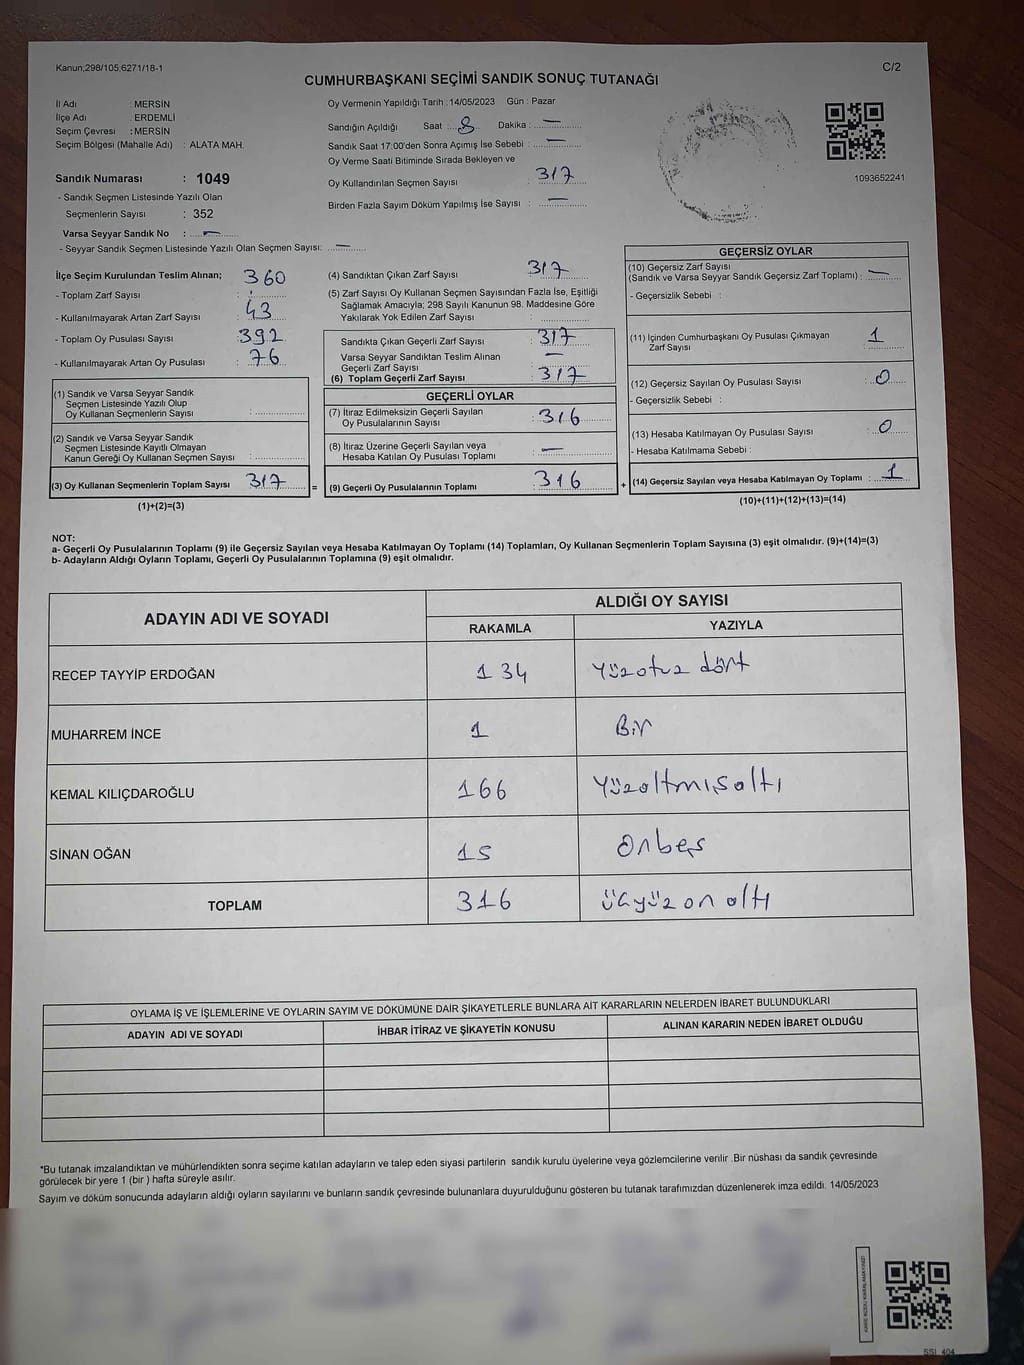 Kanun;298/105,6271/18-1
C/2
CUMHURBAŞKANI SEÇİMİ SANDIK SONUÇ TUTANAĞI
İl Adı : MERSİN
İlçe Adı : ERDEMLİ
Seçim Çevresi : MERSİN
Seçim Bölgesi (Mahalle Adı) : ALATA MAH.
Sandık Numarası : 1049
- Sandık Seçmen Listesinde Yazılı Olan
Seçmenlerin Sayısı : 352
Varsa Seyyar Sandık No : —
- Seyyar Sandık Seçmen Listesinde Yazılı Olan Seçmen Sayısı: —
Oy Vermenin Yapıldığı Tarih :14/05/2023 Gün : Pazar
Sandığın Açıldığı Saat : 8 Dakika : —
Sandık Saat 17:00'den Sonra Açımış İse Sebebi : —
Oy Verme Saati Bitiminde Sırada Bekleyen ve
Oy Kullandırılan Seçmen Sayısı : 317
Birden Fazla Sayım Döküm Yapılmış İse Sayısı : —
1093652241
İlçe Seçim Kurulundan Teslim Alınan;
- Toplam Zarf Sayısı : 360
- Kullanılmayarak Artan Zarf Sayısı : 43
- Toplam Oy Pusulası Sayısı : 392
- Kullanılmayarak Artan Oy Pusulası : 76
(1) Sandık ve Varsa Seyyar Sandık
Seçmen Listesinde Yazılı Olup
Oy Kullanan Seçmenlerin Sayısı :
(2) Sandık ve Varsa Seyyar Sandık
Seçmen Listesinde Kayıtlı Olmayan
Kanun Gereği Oy Kullanan Seçmen Sayısı :
(3) Oy Kullanan Seçmenlerin Toplam Sayısı : 317
(1)+(2)=(3)
(4) Sandıktan Çıkan Zarf Sayısı : 317
(5) Zarf Sayısı Oy Kullanan Seçmen Sayısından Fazla İse, Eşitliği
Sağlamak Amacıyla; 298 Sayılı Kanunun 98. Maddesine Göre
Yakılarak Yok Edilen Zarf Sayısı :
Sandıkta Çıkan Geçerli Zarf Sayısı : 317
Varsa Seyyar Sandıktan Teslim Alınan
Geçerli Zarf Sayısı : —
(6) Toplam Geçerli Zarf Sayısı : 317
GEÇERLİ OYLAR
(7) İtiraz Edilmeksizin Geçerli Sayılan
Oy Pusulalarının Sayısı : 316
(8) İtiraz Üzerine Geçerli Sayılan veya
Hesaba Katılan Oy Pusulası Toplamı : —
= (9) Geçerli Oy Pusulalarının Toplamı : 316
GEÇERSİZ OYLAR
(10) Geçersiz Zarf Sayısı
(Sandık ve Varsa Seyyar Sandık Geçersiz Zarf Toplamı) : —
- Geçersizlik Sebebi :
(11) İçinden Cumhurbaşkanı Oy Pusulası Çıkmayan
Zarf Sayısı : 1
(12) Geçersiz Sayılan Oy Pusulası Sayısı : 0
- Geçersizlik Sebebi :
(13) Hesaba Katılmayan Oy Pusulası Sayısı : 0
- Hesaba Katılmama Sebebi :
+ (14) Geçersiz Sayılan veya Hesaba Katılmayan Oy Toplamı : 1
(10)+(11)+(12)+(13)=(14)
NOT:
a- Geçerli Oy Pusulalarının Toplamı (9) ile Geçersiz Sayılan veya Hesaba Katılmayan Oy Toplamı (14) Toplamları, Oy Kullanan Seçmenlerin Toplam Sayısına (3) eşit olmalıdır. (9)+(14)=(3)
b- Adayların Aldığı Oyların Toplamı, Geçerli Oy Pusulalarının Toplamına (9) eşit olmalıdır.
ADAYIN ADI VE SOYADI ALDIĞI OY SAYISI
RAKAMLA YAZIYLA
RECEP TAYYİP ERDOĞAN 134 Yüzotuz dört
MUHARREM İNCE 1 Bir
KEMAL KILIÇDAROĞLU 166 Yüzaltmışaltı
SİNAN OĞAN 15 Onbeş
TOPLAM 316 üçyüz on altı
OYLAMA İŞ VE İŞLEMLERİNE VE OYLARIN SAYIM VE DÖKÜMÜNE DAİR ŞİKAYETLERLE BUNLARA AİT KARARLARIN NELERDEN İBARET BULUNDUKLARI
ADAYIN ADI VE SOYADI İHBAR İTİRAZ VE ŞİKAYETİN KONUSU ALINAN KARARIN NEDEN İBARET OLDUĞU
*Bu tutanak imzalandıktan ve mühürlendikten sonra seçime katılan adayların ve talep eden siyasi partilerin sandık kurulu üyelerine veya gözlemcilerine verilir .Bir nüshası da sandık çevresinde
görülecek bir yere 1 (bir ) hafta süreyle asılır.
Sayım ve döküm sonucunda adayların aldığı oyların sayılarını ve bunların sandık çevresinde bulunanlara duyurulduğunu gösteren bu tutanak tarafımızdan düzenlenerek imza edildi. 14/05/2023
SSI_404